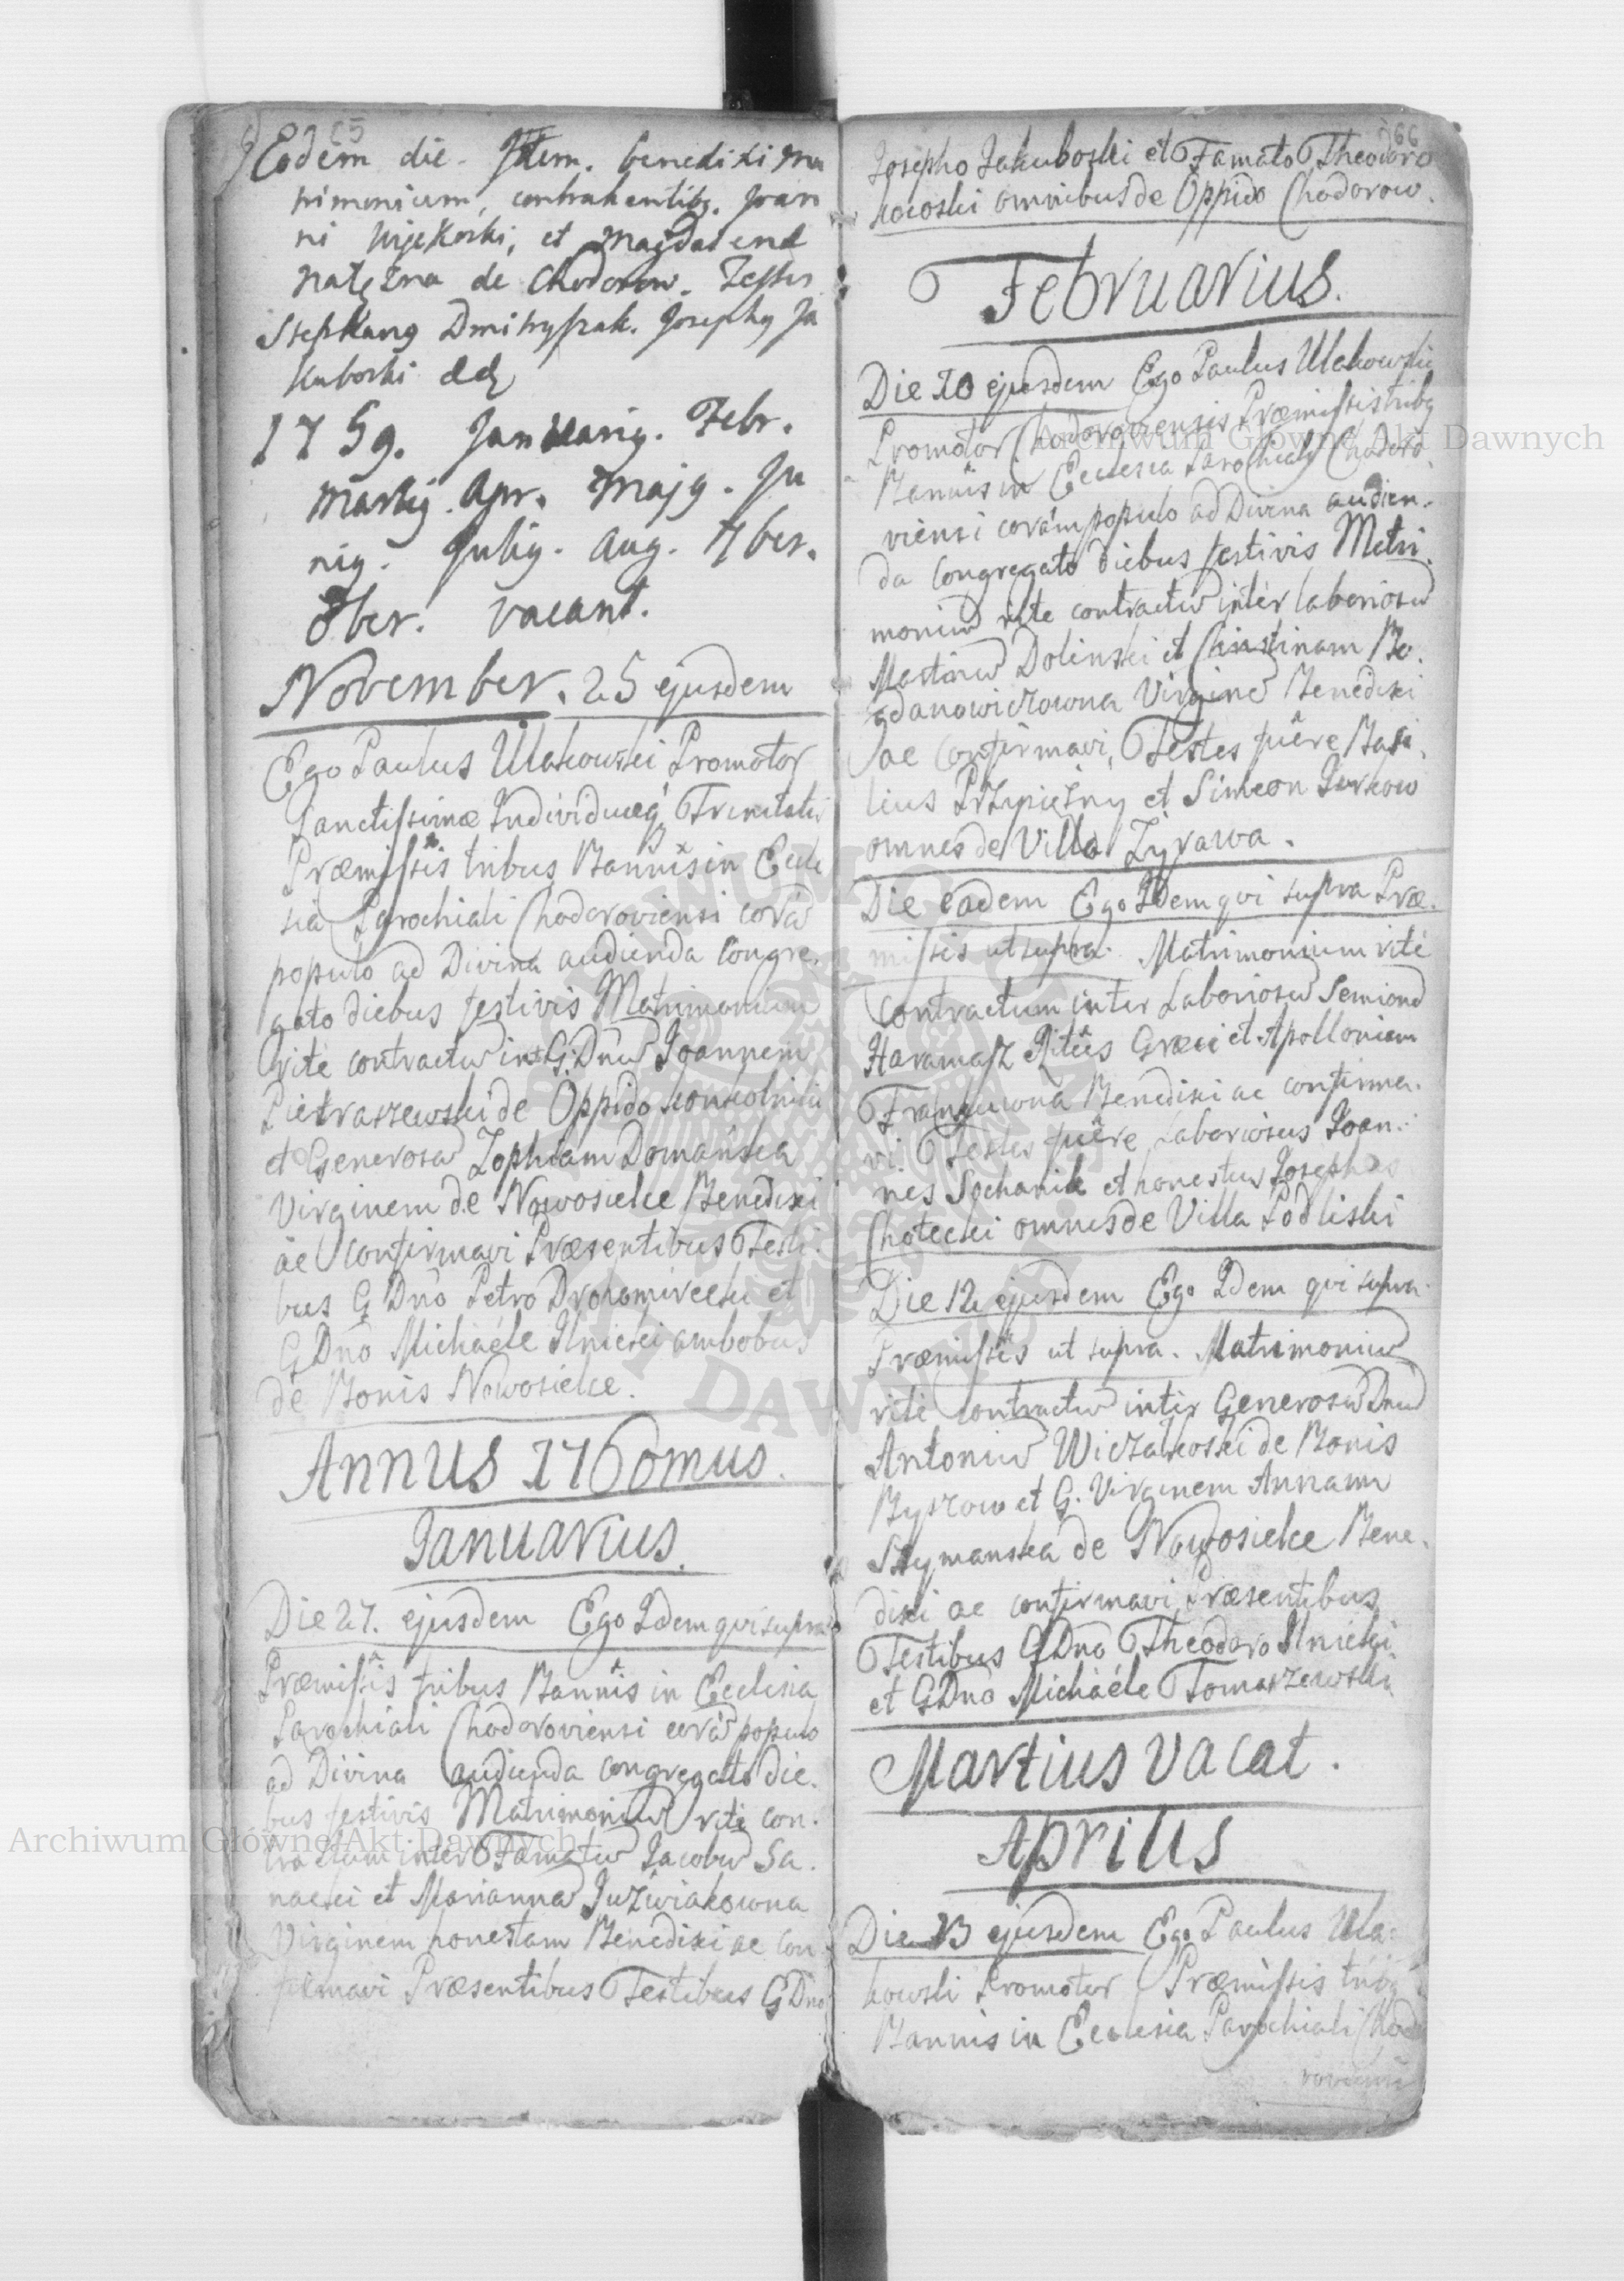 65
Eodem die. Idem. benedixi ma
trimonium, contrahentibg. Joan
ni et Magdalena
de Chodorow. Testes
Stephang Dmitryszak. Josephg Ja
kuboski
1759. Januarig. Febr.
Martig. Apr. Majg. Ju
nig. Julig. Aug. 7ber.
8ber. vacant.
November. 25 ejusdem
Ego Paulus Ulakowski Promotor
Sanctissimæ Individuæq Trinitatis
Præmissis tribus Bannis in Eccle
sia Parochiali Chodoroviensi corā
populo ad Divina audienda Congre.
gato diebus festivis Matrimonium
rite contractū int. G. Dnū Joannem
Pietraszewski de Oppido
et Generosā Zophiam Domańska
Virginem de Nowosielce Benedixi
ac Confirmavi Præsentibus Testi.
bus G Dno Petro Drohomirecki et
G Dno Michaéle Ilnicki ambobus
de Bonis Nowosielce.
Annus 1760mus.
Januarius.
Die 27. ejusdem Ego Idem qui supra
Præmissis tribus Bannis in Ecclesia
Parochiali Chodoroviensi corā populo
ad Divina audienda Congregato die.
bus festivis Matrimoniū rite con.
tractum inter Famatū Jacobū Sa.
nacki et Mariannā Juźwiakowna
Virginem honestam Benedixi ac Con
firmavi Præsentibus Testibus G Dno
66
Josepho Jakuboski et Famato Theodoro
omnibus de Oppido Chodorow.
Februarius.
Die 10 ejusdem Ego Paulus Ulakowski
Promotor Chodoroviensis Præmissis tribg
Bannis in Ecclesia Parochiali Chodoro
viensi corám populo ad Divina audien.
da Congregato diebus festivis Matri.
moniū rite contractū inter laboriosū
Martinū Dolinski et Christinam Bo.
gdanowiczowna Virginē Benedixi
ac Confirmavi, Testes fuêre Basi.
lius Przepiężny et Simeon Jurkow
omnes de Villa Zyrawa.
Die eadem Ego Idem qvi supra Præ.
missis ut supra. Matrimonium rité
Contractum inter Laboriosū Semionē
Haramasz Ritûs Græci et Apolloniam
Benedixi ac confirma.
vi. Testes fuêre Laboriosus Joan.
nes Sochanik et honestus Josephus
Chotecki omnes de Villa Podliski
Die 12 ejusdem Ego Idem qvi supra.
Præmissis ut supra. Matrimoniū
rité Contractū inter Generosū Dnū
Antoniū Wiczałkoski de Bonis
Byszow et G. Virginem Annam
Szymanska de Nowosielce Bene.
dixi ac confirmavi Præsentibus
Testibus G Dno Theodoro Ilnicki
et G Dno Michaéle Tomaszewski
Martius Vacat.
Aprilis
Die 13 ejusdem Ego Paulus Ula.
kowski Promotor Præmissis tribg
Bannis in Ecclesia Parochiali Chodo
roviensi
Archiwum Główne Akt Dawnych
Archiwum Główne Akt Dawnych